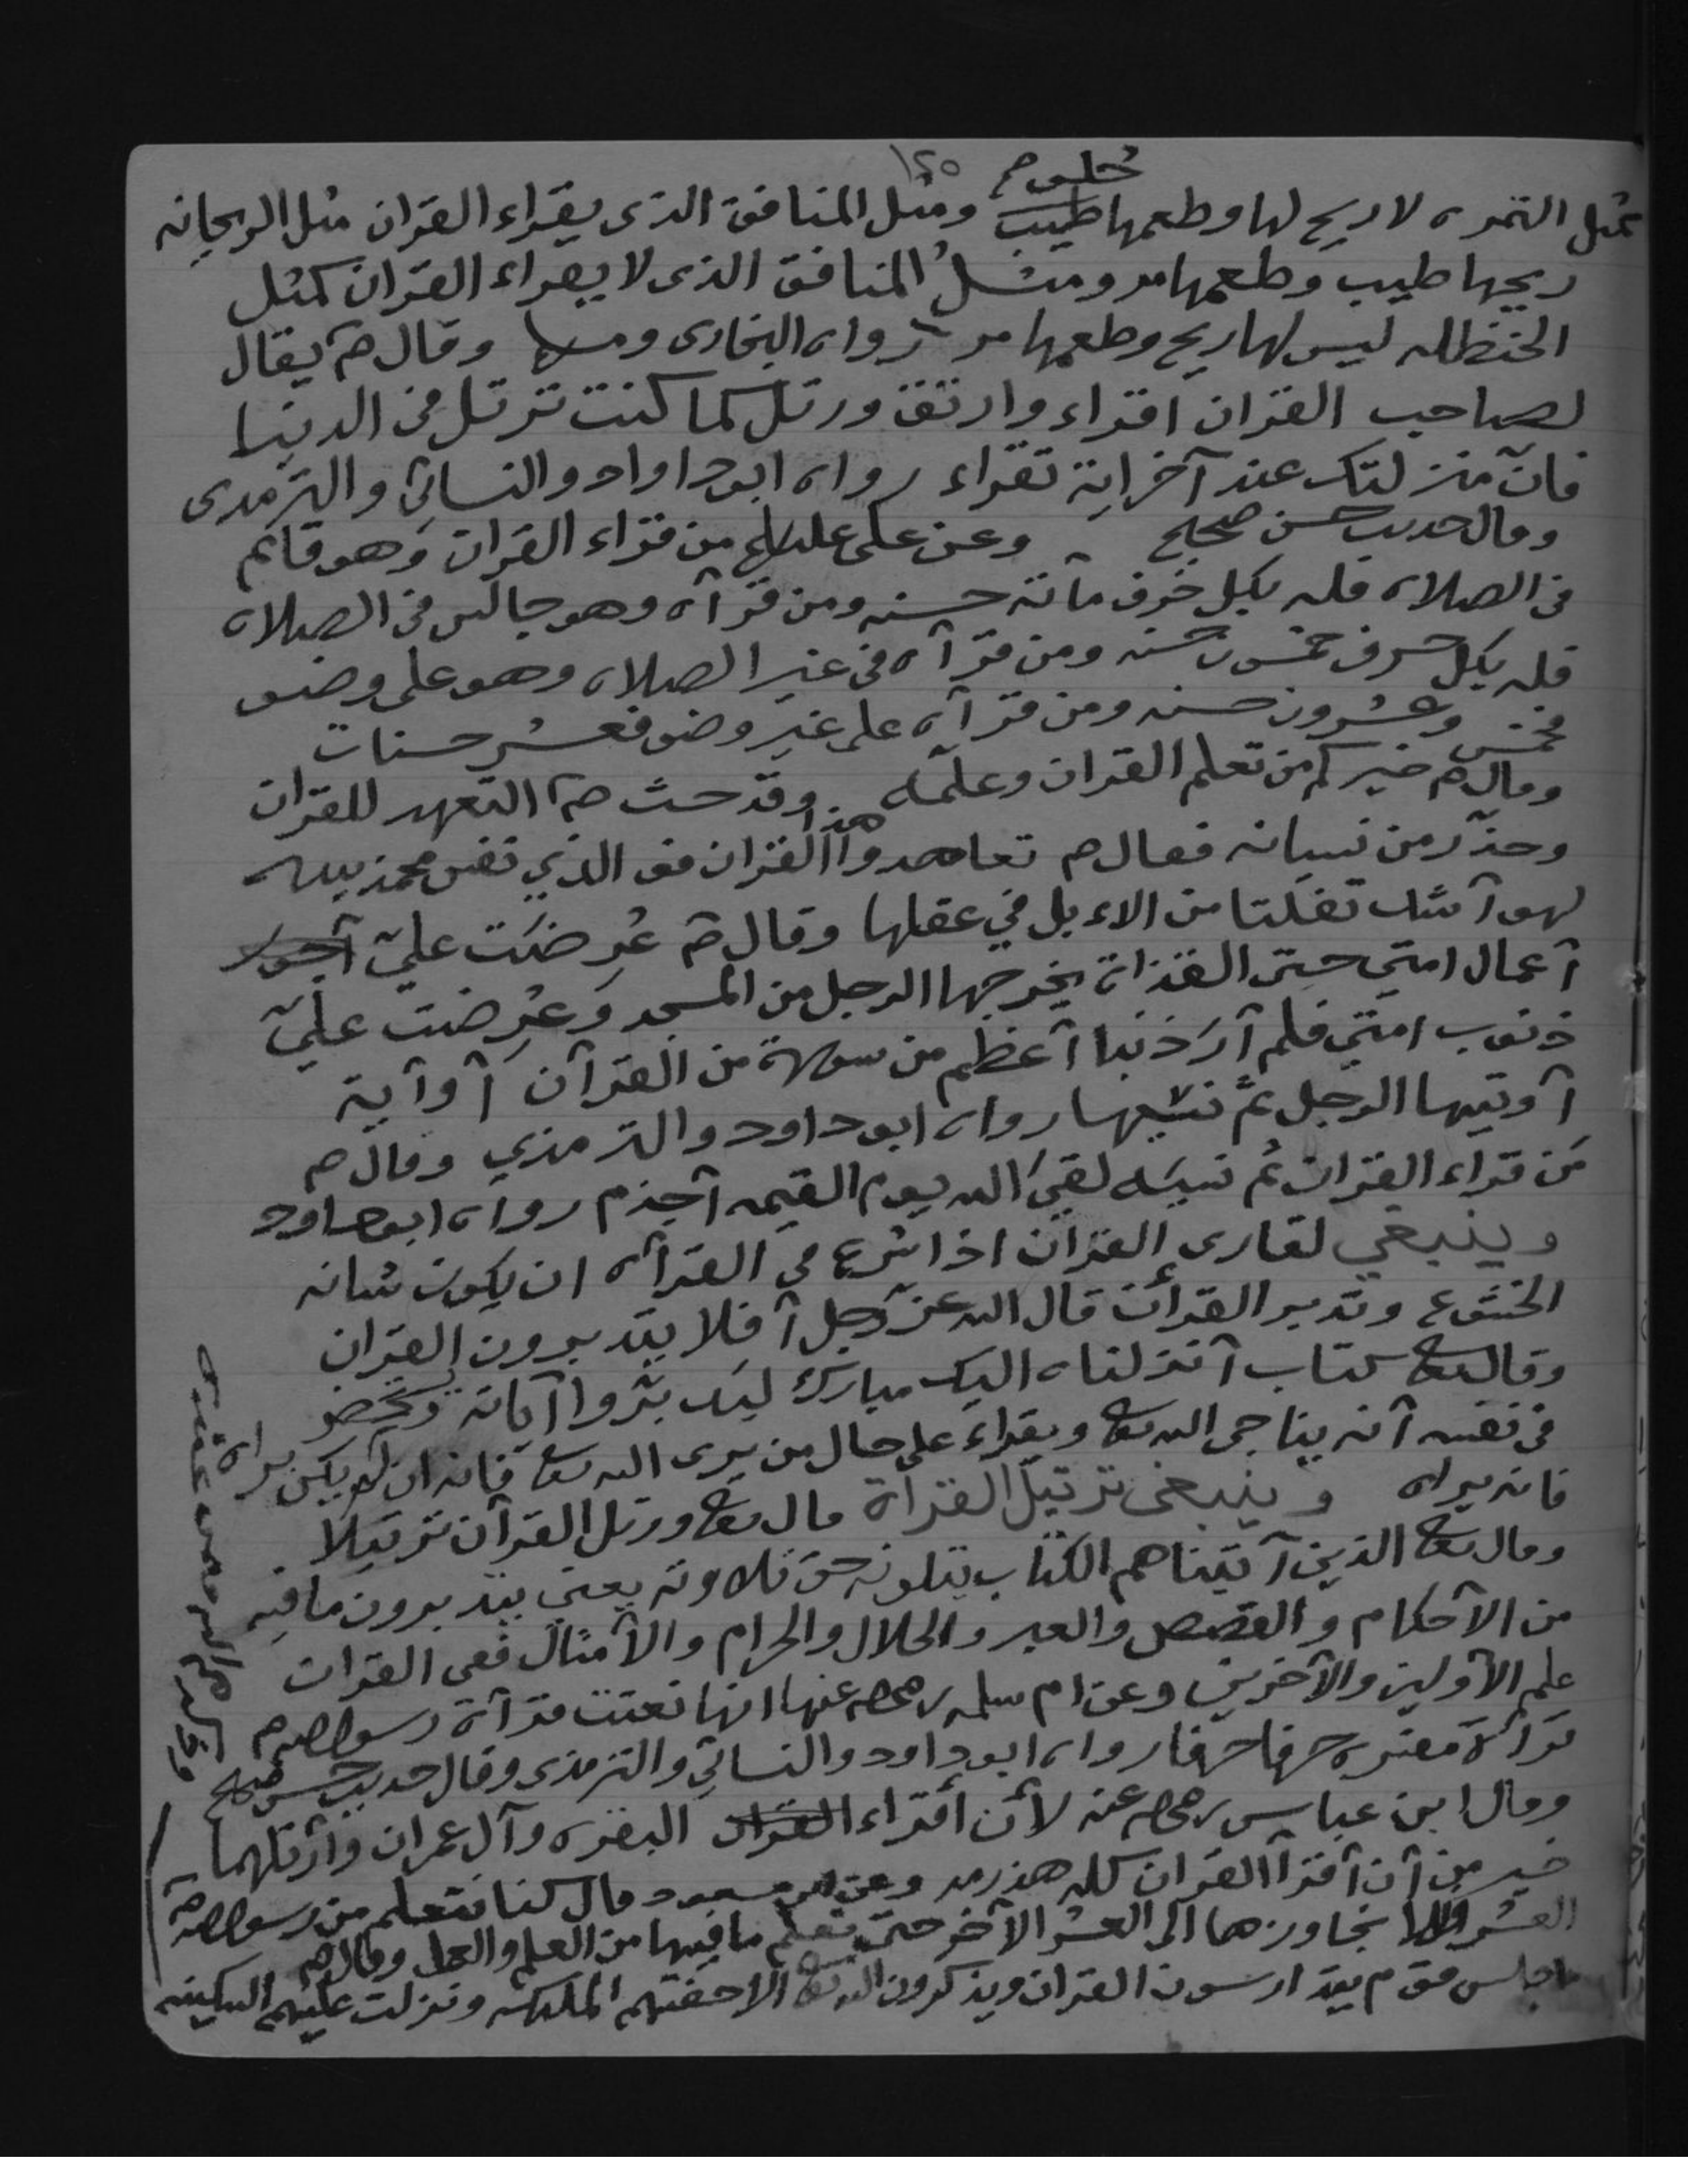 ١٢٥
حلو صح
مثل التمره لا ريح لها وطعمها طيب ومثل المنافق الذى يقراء القران مثل الريحانه
ريحها طيب وطعمها مر ومثل المنافق الذى لا يقراء القران كمثل
الحنظله ليس لها ريح وطعمها مر رواه البخارى ومسلم وقال صم يقال
لصاحب القران اقراء وارتق ورتل كما كنت ترتل فى الدنيا
فان منزلتك عند آخر اية تقراء رواه ابوداواد والنسائي والترمدى
وقال حديث حسن صحيح وعن على علىلم من قراء القران وهو قائم
فى الصلاه فله بكل حرف مائة حسنه ومن قرآه وهو جالس فى الصلاه
فله بكل حرف خمسون حسنه ومن قرآه فى غير الصلاه وهو على وضو
فخمس وعشرون حسنه ومن قرآه على غير وضو فعشر حسنات
وقال صم خيركم من تعلم القران وعلمه وقد حث صم التعهد للقران
وحذر من نسيانه فقال صم تعاهدوا هذا القران فو الذي نفس محمد بيده
لهو آشد تفلتا من الاءبل في عقلها وقال صم عُرضَت عليّ آجور
آعمال امتي حتى القذاة يخرجها الرجل من المسجد وعُرِضت عليّ
ذنوب امتي فلم آرَ ذنبا آعظم من سورة من القرآن آو آية
آوتيها الرجل ثمَّ نسيها رواه ابوداود والترمذي وقال صم
مَن قراء القران ثم نسيَه لقيَ الله يوم القيمه آجذم رواه ابوداود
وينبغي لقارى القران اذا شرع في القرآه ان يكون شانه
الخشوع وتدبر القرآن قال الله عز وجل آفلا يتدبرون القران
وقال تعا كتاب آنزلناه اليك مبارك ليدبّروا آياته ويحضر
فى نفسه آنه يناجى الله تعا ويقراء على حال من يرى الله تعا فانه ان لم يكن يراه
فانه يراه وينبغى ترتيل القراة قال تعا ورتل القرآن ترتيلا
وقال تعا الذين آتيناهم الكتاب يتلونه حق تلاوته يعنى يتدبرون ما فيه
من الآحكام والقصص والعبر والحلال والحرام والآمثال ففى القران
علم الآولين والآخرين وعن ام سلمه رضى الله عنها انها نعتت قرآة رسول الله صم
قرآءة مفسره حرفا حرفا رواه ابوداود والنسائي والترمذى وقال حديث حسن صحيح
وقال ابن عباس رضى الله عنه لآن أقراء القران البقره وآل عمران وارتلهما
خير من آن آقرآ القران كله هذرمه وعن ابن مسعود قال كنا نتعلم من رسول الله صم
العشر فلا نجاوزها الى العشر الآخر حتى نعلم ما فيها من العلم والعمل وقال صم
ما جلس قوم يتدارسون القران ويذكرون الله تعا الا حفتهم الملئكه ونزلت عليهم السكينه